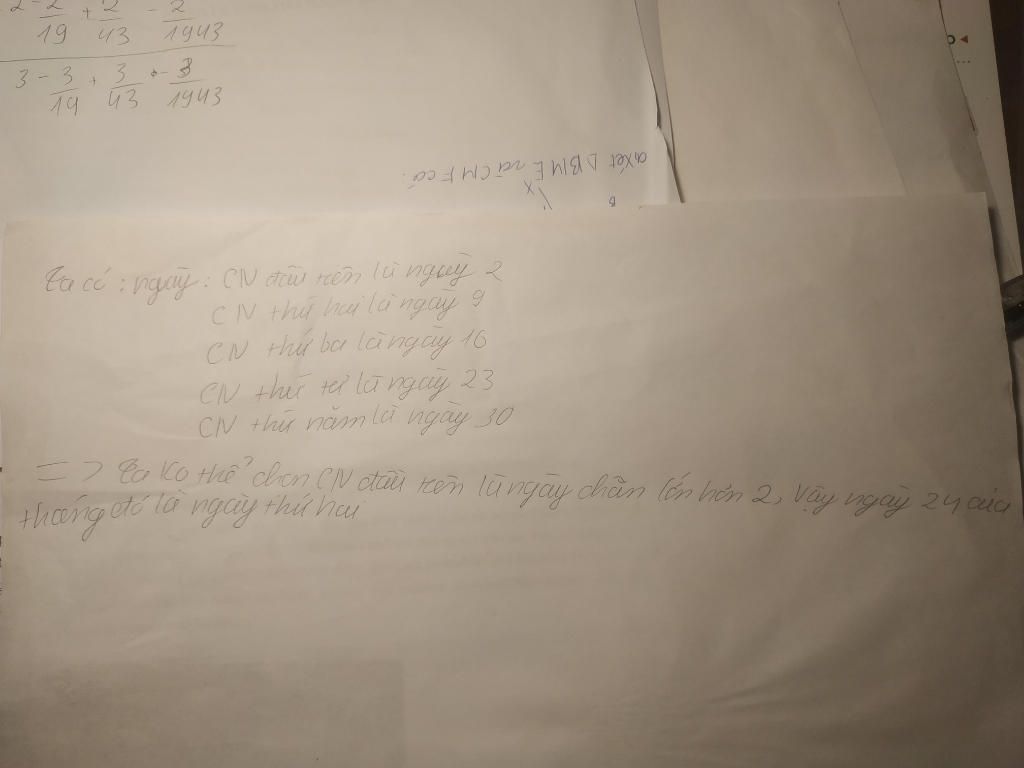 2 - 2/19 + 2/43 - 2/1943
3 - 3/19 + 3/43 - 3/1943
a xét ΔBME và CMF có:
Ta có : ngày : CN đầu tiên là ngày 2
CN thứ hai là ngày 9
CN thứ ba là ngày 16
CN thứ tư là ngày 23
CN thứ năm là ngày 30
=> Ta ko thể chọn CN đầu tiên là ngày chẵn lớn hơn 2, Vậy ngày 24 của
tháng đó là ngày thứ hai